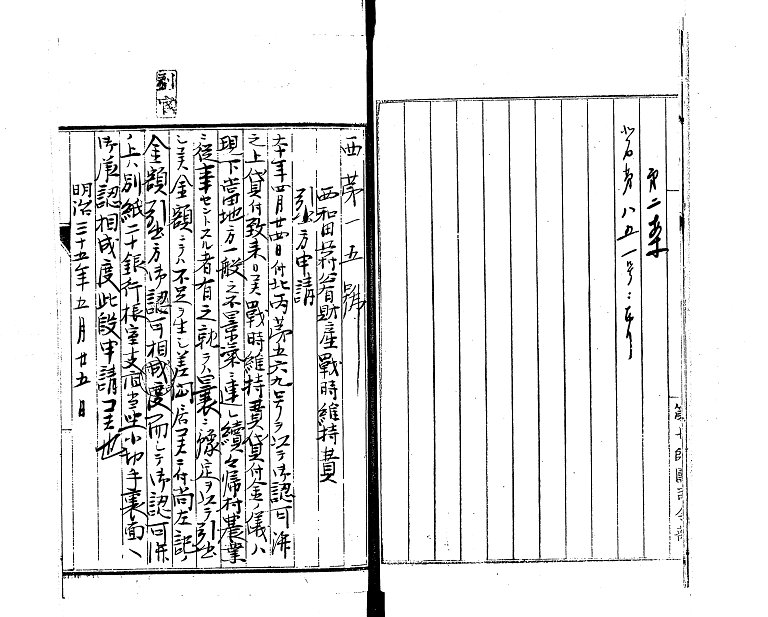 第二案
第八五一号ニ
第七師團司令部
副官
西第一五號
西和田蔚公有財産戰時維持費
引出方申請
本年四月廿四日付北丙第五六九号ヲ以テ御認可済
之上貸付致来候戰時維持費貸付金ノ儀ハ
現下當地方一般之不景氣ニ連レ續々帰村農業
ニ従事セントスル者有之就テハ曩ニ據定ヲ以テ引出
シ金額ニテハ不足ヲ生シ差
金額引出方御認可相成度而シテ御認可済
ノ上ハ別紙二十銀行根室支店当坐小切手裏面ヘ
御承認相成度此段申請候也
明治三十五年五月廿五日